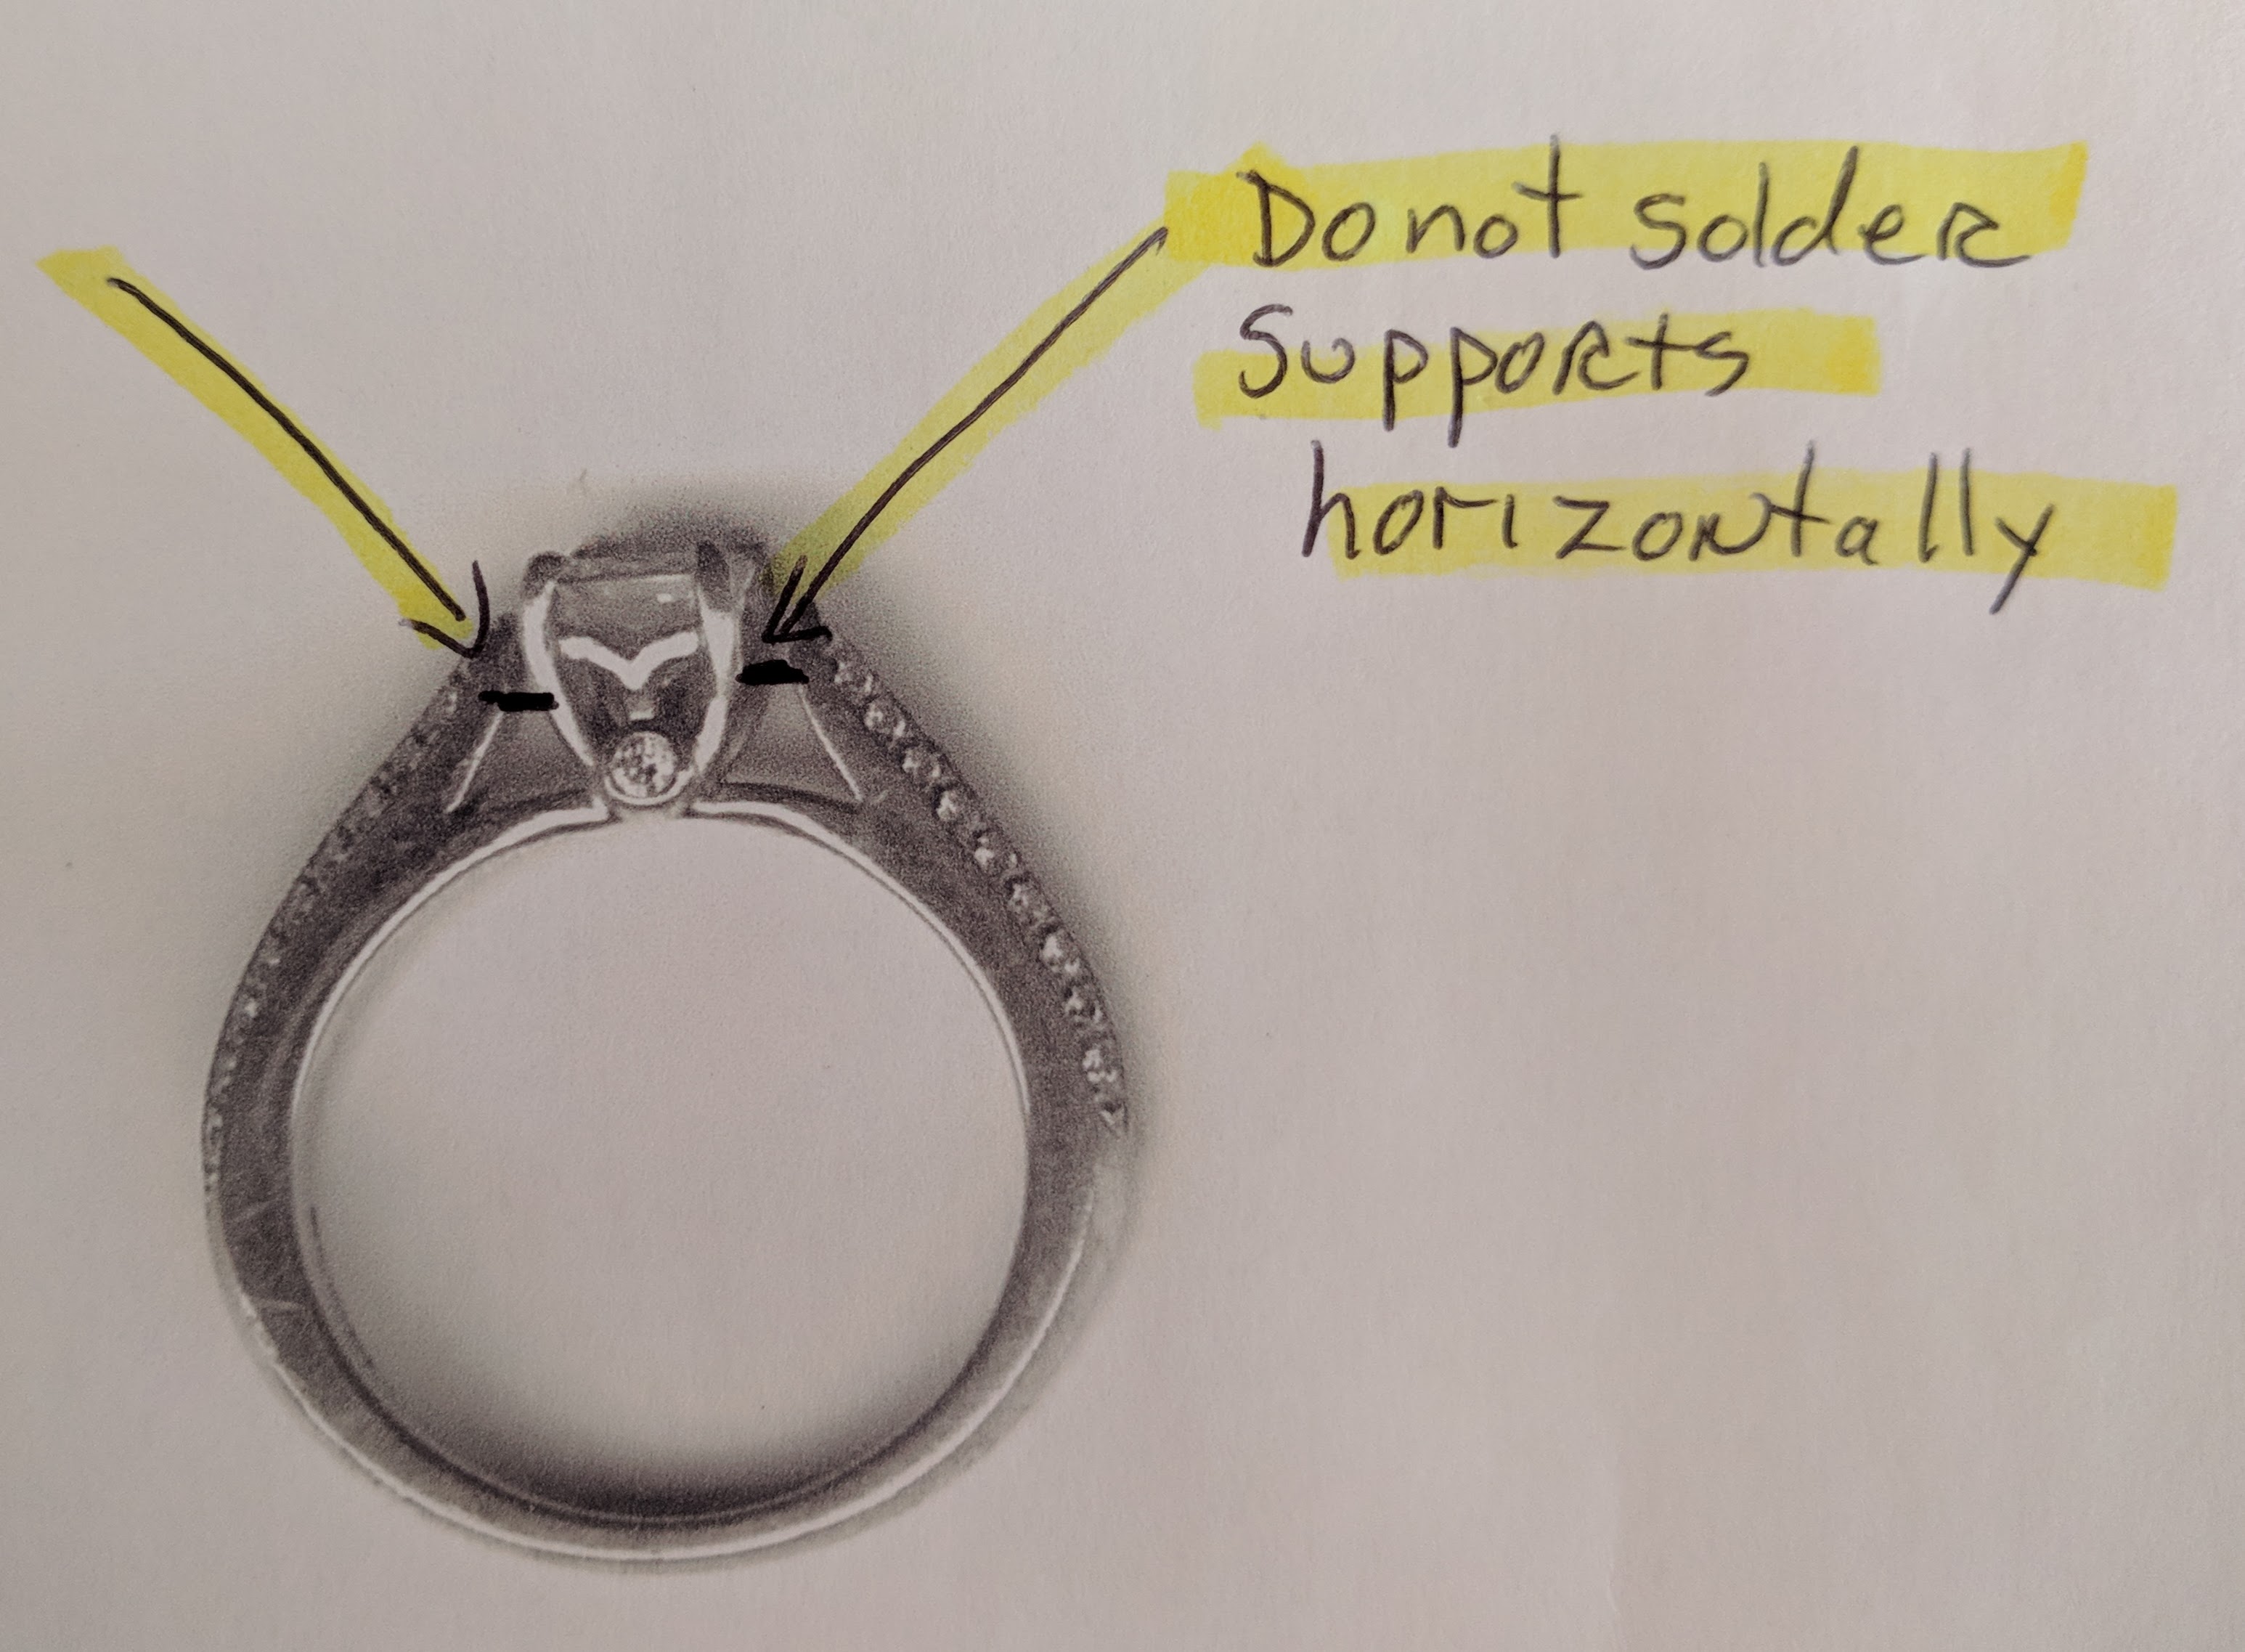 Do not solder
Supports
horizontally